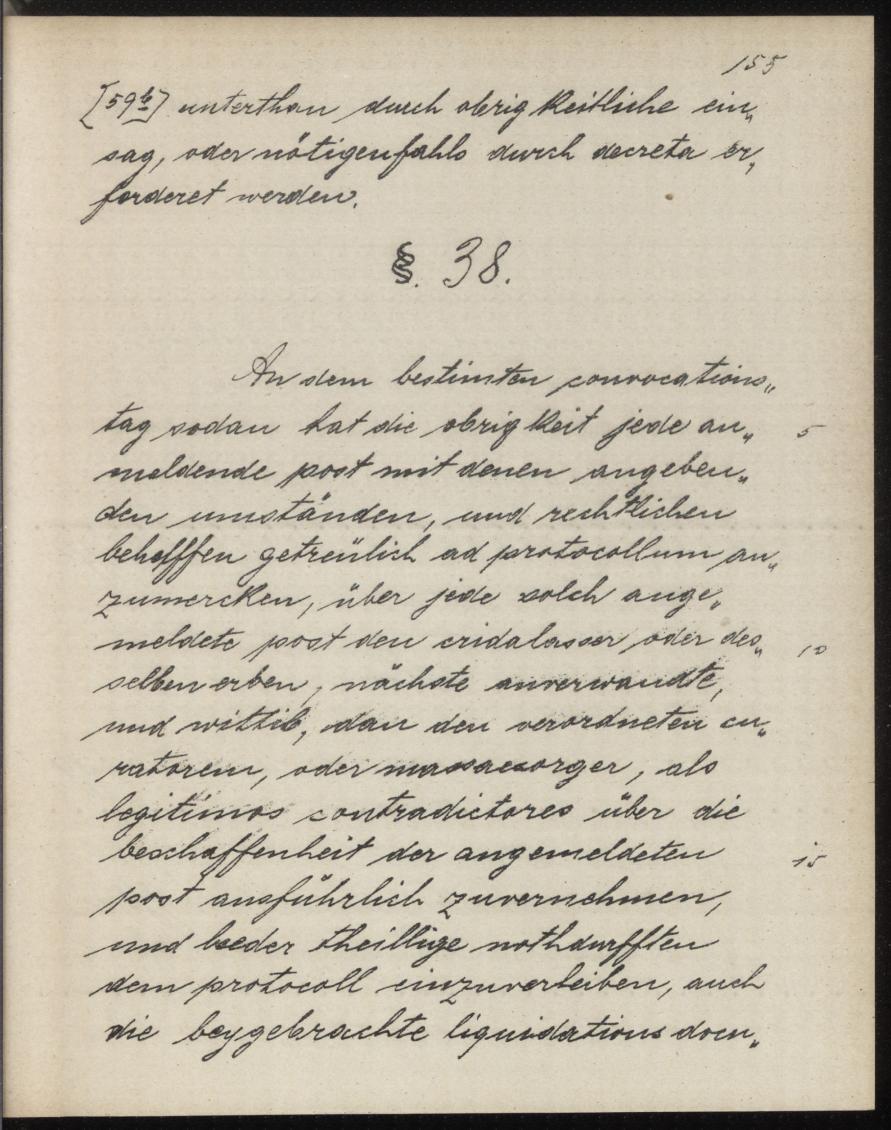 155
[59b] unterthan durch obrigkeitliche ein„
sag, oder nötigenfahls durch decreta er„
forderet werden.
§. 38.
An dem bestimten convocations„
tag sodan hat die obrigkeit jede an„ 5
meldende post mit denen angeben„
den umständen, und rechtlichen
behelffen getreülich ad protocollum an„
zumercken, über jede solch ange„
meldete post den cridalasser oder des„ 10
selben erben, nächste anverwandte,
und wittib, dan den verordneten cu„
ratorem, oder massaesorger, als
legitimos contradictores über die
beschaffenheit der angemeldeten 15
post ausführlich zuvernehmen,
und beeder theillige nothdurfften
dem protocoll einzuverleiben, auch
die beygebrachte liquidations docu„